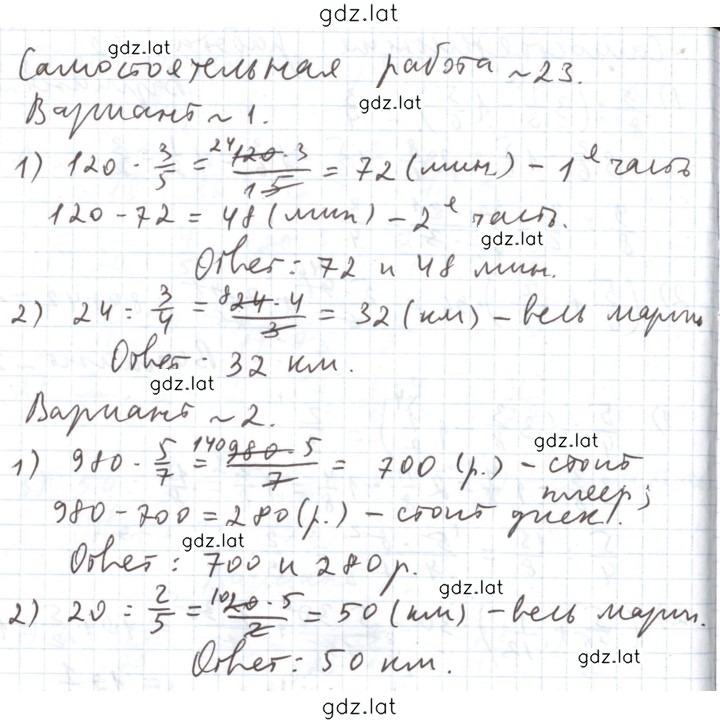 gdz.lat
gdz.lat
Самостоятельная работа №23.
gdz.lat
Вариант №1.
1) 120 · 3/5 = 24 120 · 3 / 1 5 = 72 (мин.) - 1ᵉ часть
120 - 72 = 48 (мин) - 2ᵉ часть.
gdz.lat
Ответ: 72 и 48 мин.
2) 24 : 3/4 = 8 24 · 4 / 3 = 32 (км) - весь марш.
Ответ: 32 км.
gdz.lat
Вариант №2.
gdz.lat
1) 980 · 5/7 = 140 980 · 5 / 7 = 700 (р.) - стоит
плеер;
980 - 700 = 280 (р.) - стоит диск.
gdz.lat
Ответ: 700 и 280 р.
gdz.lat
2) 20 : 2/5 = 10 20 · 5 / 2 = 50 (км) - весь марш.
Ответ: 50 км.
gdz.lat
gdz.lat